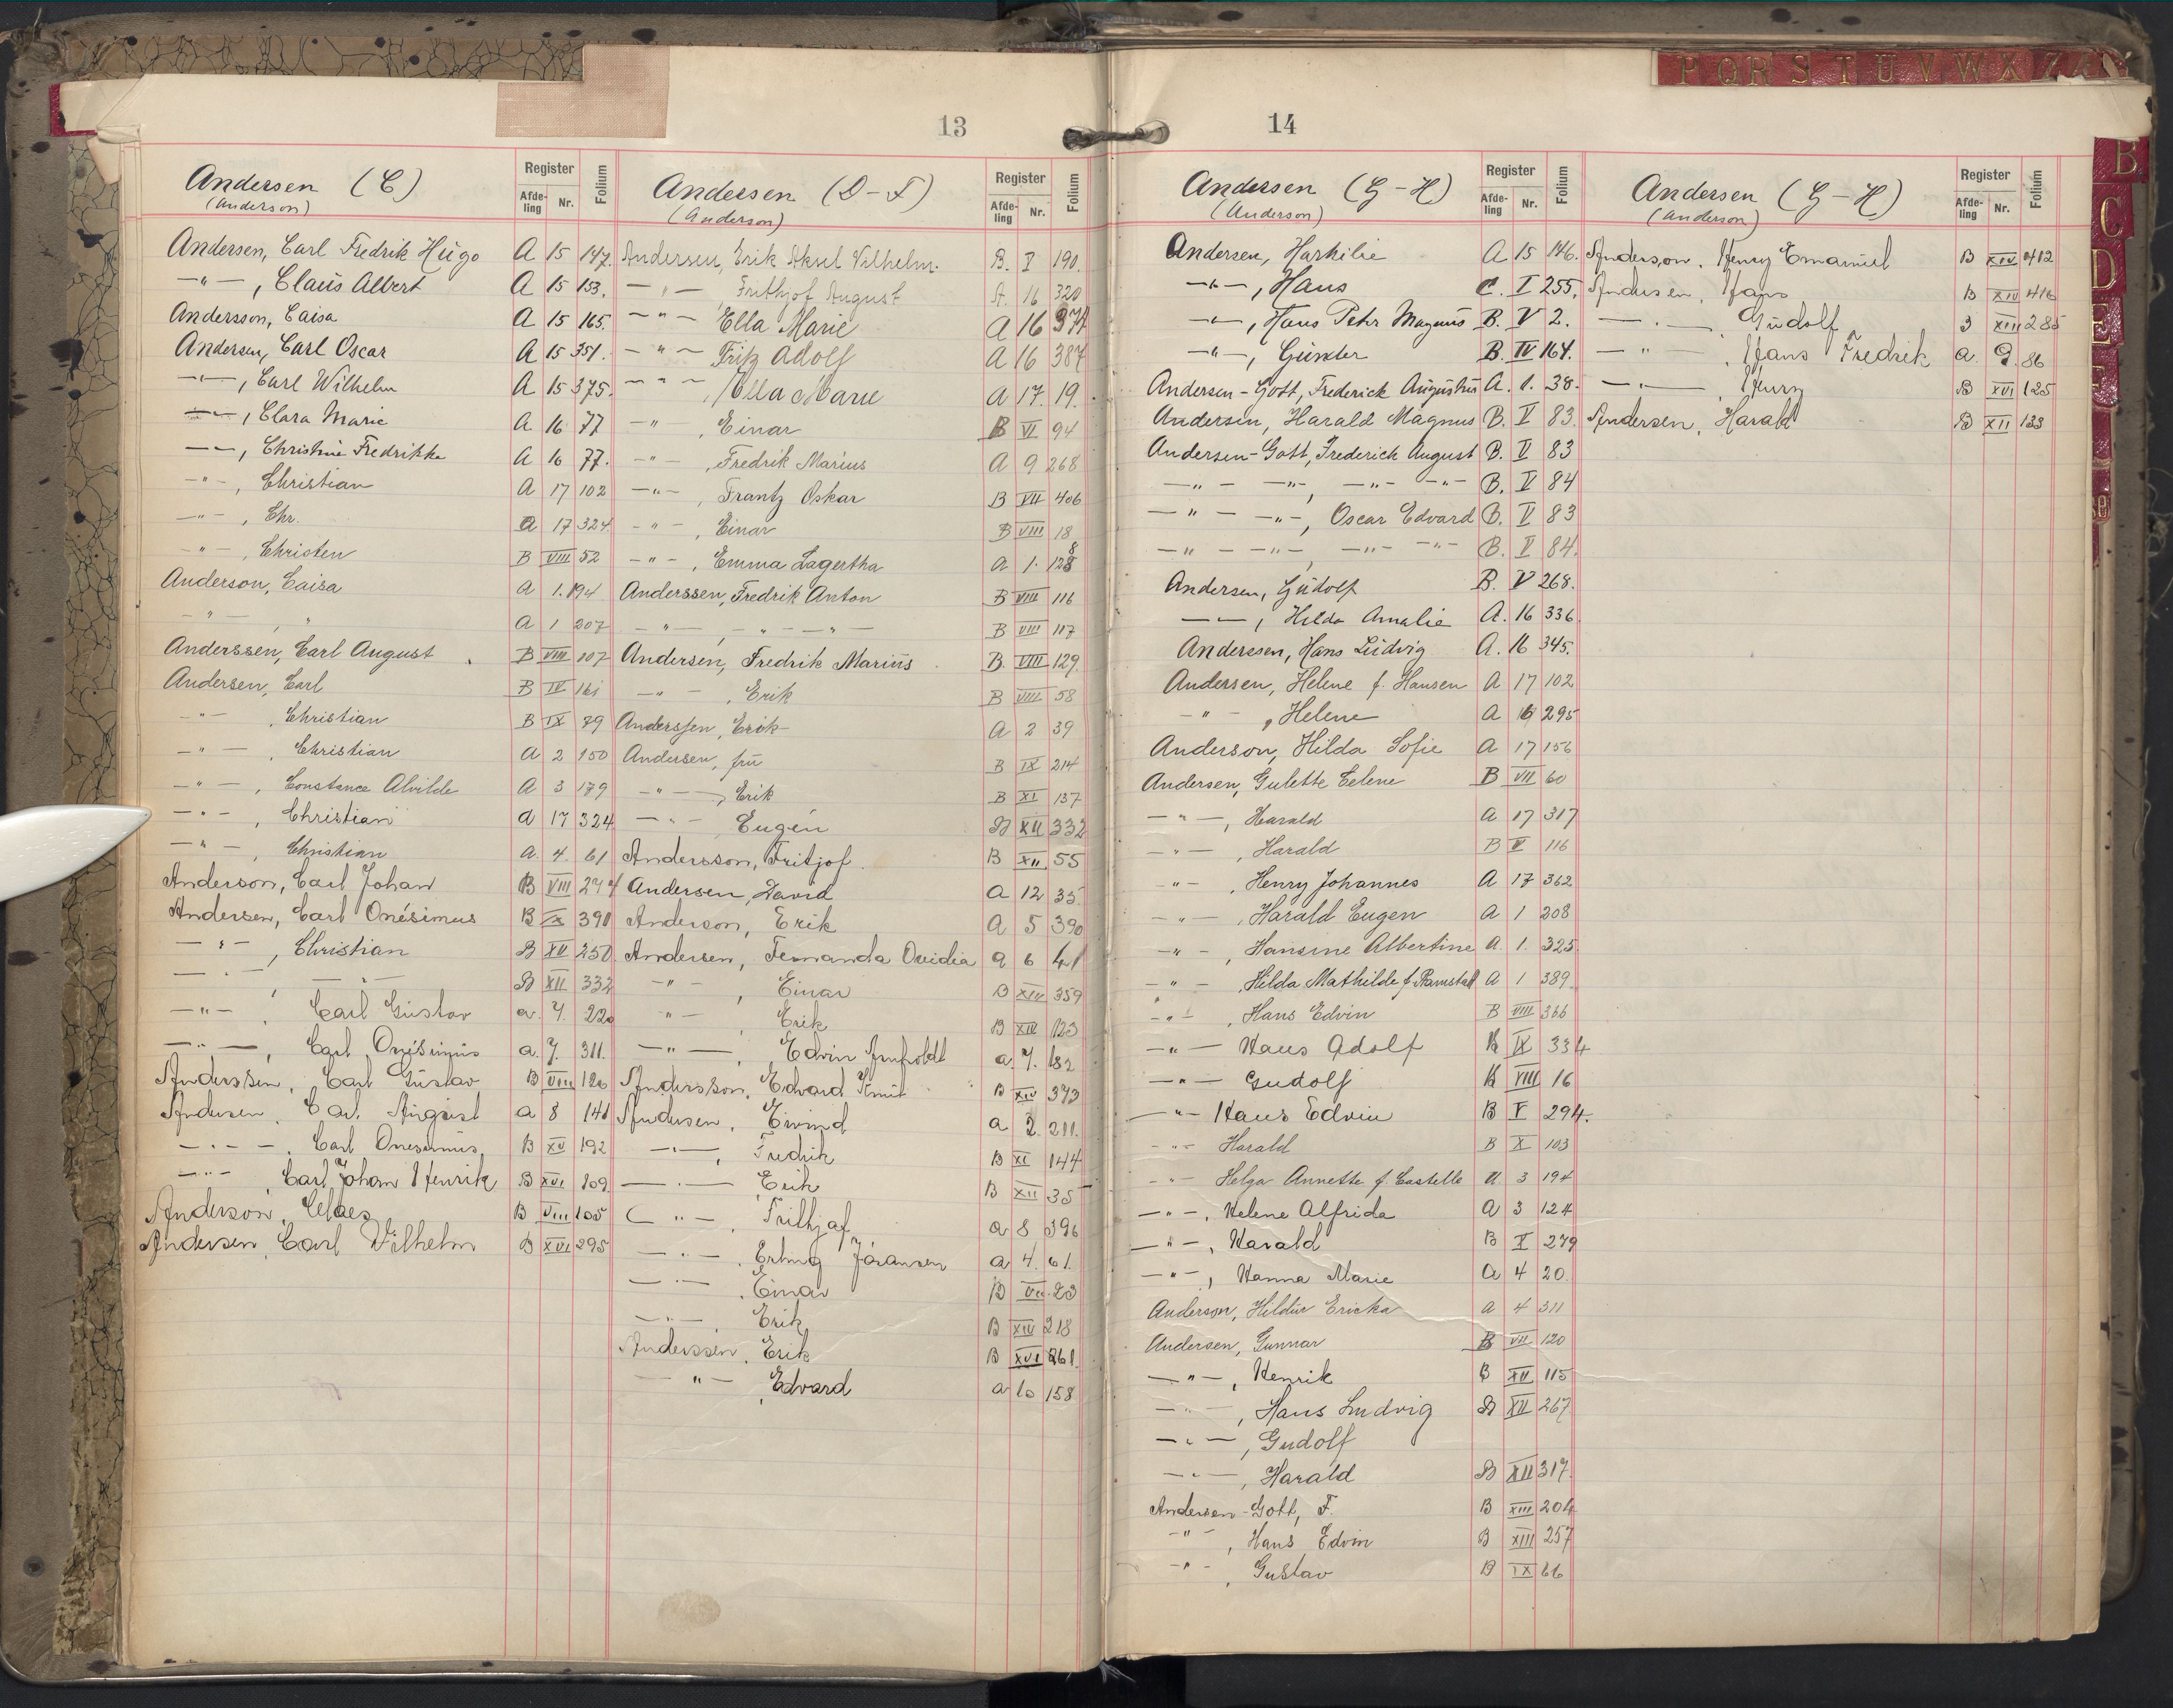 13
Andersen (C)
(Anderson)
Register
Afde-
ling
Nr.
Folium
Andersen, Carl Fredrik Hugo A 15 147.
—"—, Claus Albert A 15 153.
Andersson, Caisa A 15 165.
Andersen, Carl Oscar A 15 351.
—"—, Carl Wilhelm A 15 375.
—"—, Clara Marie A 16 77
—"—, Christine Fredrikke A 16 77.
—"—, Christian A 17 102
—"—, Chr. A 17 324
—"—, Christen B VIII 52
Anderson, Caisa A 1. 194
—"—, " A 1 207
Anderssen, Carl August B VIII 107
Andersen, Carl B IV 161
—"—, Christian B IX 79
—"—, Christian A 2 150
—"—, Constance Alvilde A 3 179
—"—, Christian A 17 324
—"—, Christian A. 4. 61
Anderson, Carl Johan B VIII 244
Andersen, Carl Onésimus B IX 390
—"—, Christian B XV 250
—"— — B XII 332
—"—, Carl Gustav a. 7. 220
—"—, Carl Onésimus a. 7. 311.
Anderssen, Carl Gustav B VIII 120
Andersen, Carl August a 8 141
—"—, Carl Onesimus, B XV 192
—"—, Carl Johan Henrik B XVI 209
Anderson, Claes B VIII 105
Andersen, Carl Vilhelm B XVI 295
Andersen (D-F)
(Anderson)
Register
Afde-
ling
Nr.
Folium
Andersen, Erik Aksel Vilhelm. B. I 190.
—"—, Frithjof August A. 16 320
—"— Ella Marie A 16 374
—"— Fritz Adolf A 16 387
—"—, Ella Marie A 17. 19.
—"—, Einar B VI 94
—"—, Fredrik Marius A 9 268
—"—, Frantz Oskar B VII 406
—"—, Einar B VIII 18
—"—, Emma Lagertha A 1. 128
Anderssen, Fredrik Anton B VIII 116
—"—, —"—"— B VIII 117
Andersen, Fredrik Marius B. VIII 129
—"—, Erik B VIII 58
Anderssen, Erik A 2 39
Andersen, fru B IX 214
—"—, Erik B XI 137
—"— Eugén B XII 332
Andersson, Fritjof. B XII 55
Andersen, David A 12 35.
Anderson, Erik A 5 390
Andersen, Fernanda Ovidia a 6 41
—"—, Einar B XIV 359
—"—, Erik B XIV 123
—"—, Edvin Arnholdt a. 7. 182
Andersson, Edvard Knut B XIV 373
Andersen, Eivind a 2. 211.
—"—, Fredrik B XI 144
—"—, Erik B XII 35
—"—, Frithjof a 8 396
—"—, Erling Jöransen a 4. 61.
—"—, Einar B VII 23
—"—, Erik B XIV 218
Anderssen, Erik B XVI 261.
—"—, Edvard a 10 158
14
Andersen (G-H)
(Anderson)
Register
Afde-
ling
Nr.
Folium
Andersen, Harkilie A 15 146.
—"—, Hans C. I 255.
—"—, Hans Peter Magnus B. V 2.
—"—, Günder B. IV 164.
Andersen-Gott, Frederick Augustus A. 1. 38.
Andersen, Harald Magnus B. V 83.
Andersen-Gott, Frederick August B. V 83
—"— —"—, —"— —"— B. V 84
—"— —"—, Oscar Edvard B. V 83
—"— —"—, —"— —"— B. V 84.
Andersen, Gudolf B. V 268.
—"—, Hilda Amalie A. 16 336.
Anderssen, Hans Ludvig A. 16 345.
Andersen, Helene f. Hansen A 17 102
—"—, Helene A 16 295
Anderson, Hilda Sofie A 17 156
Andersen, Gulette Eelene B VII 60
—"—, Harald A 17 317
—"—, Harald B V 116
—"—, Henry Johannes A 17 362
—"—, Harald Eugen A 1 208
—"—, Hansine Albertine A. 1. 325.
—"—, Hilda Mathilde f. Ramstad A 1 389.
—"—, Hans Edvin B VIII 366
—"— Hans Adolf B IX 334
—"— Gudolf B VIII 16
—"— Hans Edvin B V 294.
—"— Harald B X 103
—"— Helga Annette f. Castelle A 3 194
—"—, Helene Alfrida A 3 124
—"—, Harald B X 279
—"—, Hanna Marie A 4 20.
Anderson, Hildur Ericka A 4 311
Andersen, Gunnar B VII 120
—"—, Henrik B XII 115
—"—, Hans Ludvig B XII 267
—"—, Gudolf
—"—, Harald B XII 317.
Andersen-Gott, F. B XIII 204
—"—, Hans Edvin B XIII 257
—"—, Gustav B IX 66
Andersen (G-H)
(Anderson)
Register
Afde-
ling
Nr.
Folium
Anderson, Henry Emanuel B XIV 412
Andersen, Hans B XIV 416
—"—, Gudolf 3 XIII 285
—"—, Hans Fredrik a. 9. 86
—"—, Henry B XVI 125
Andersen, Harald B XII 133
P Q R S T U V W X Z Æ
B
C
D
E
F